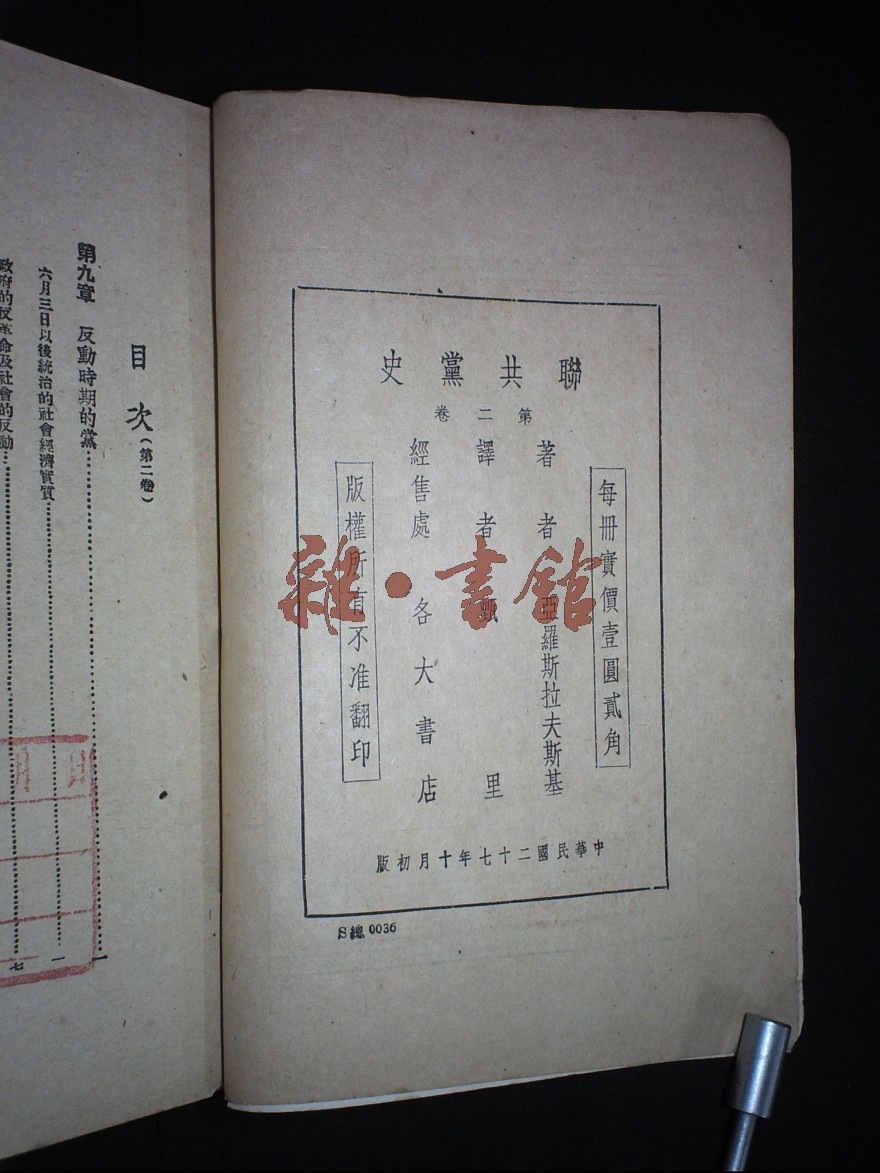 聯共黨史
第二卷
每冊實價壹圓貳角
著者 亞羅斯拉夫斯基
譯者 甄里
經售處 各大書店
版權所有不准翻印
中華民國二十七年十月初版
S總 0036
雜·書館
目次(第二卷)
第九章 反動時期的黨……一
六月三日以後統治的社會經濟實質……一
政府的反革命及社會的反動……七